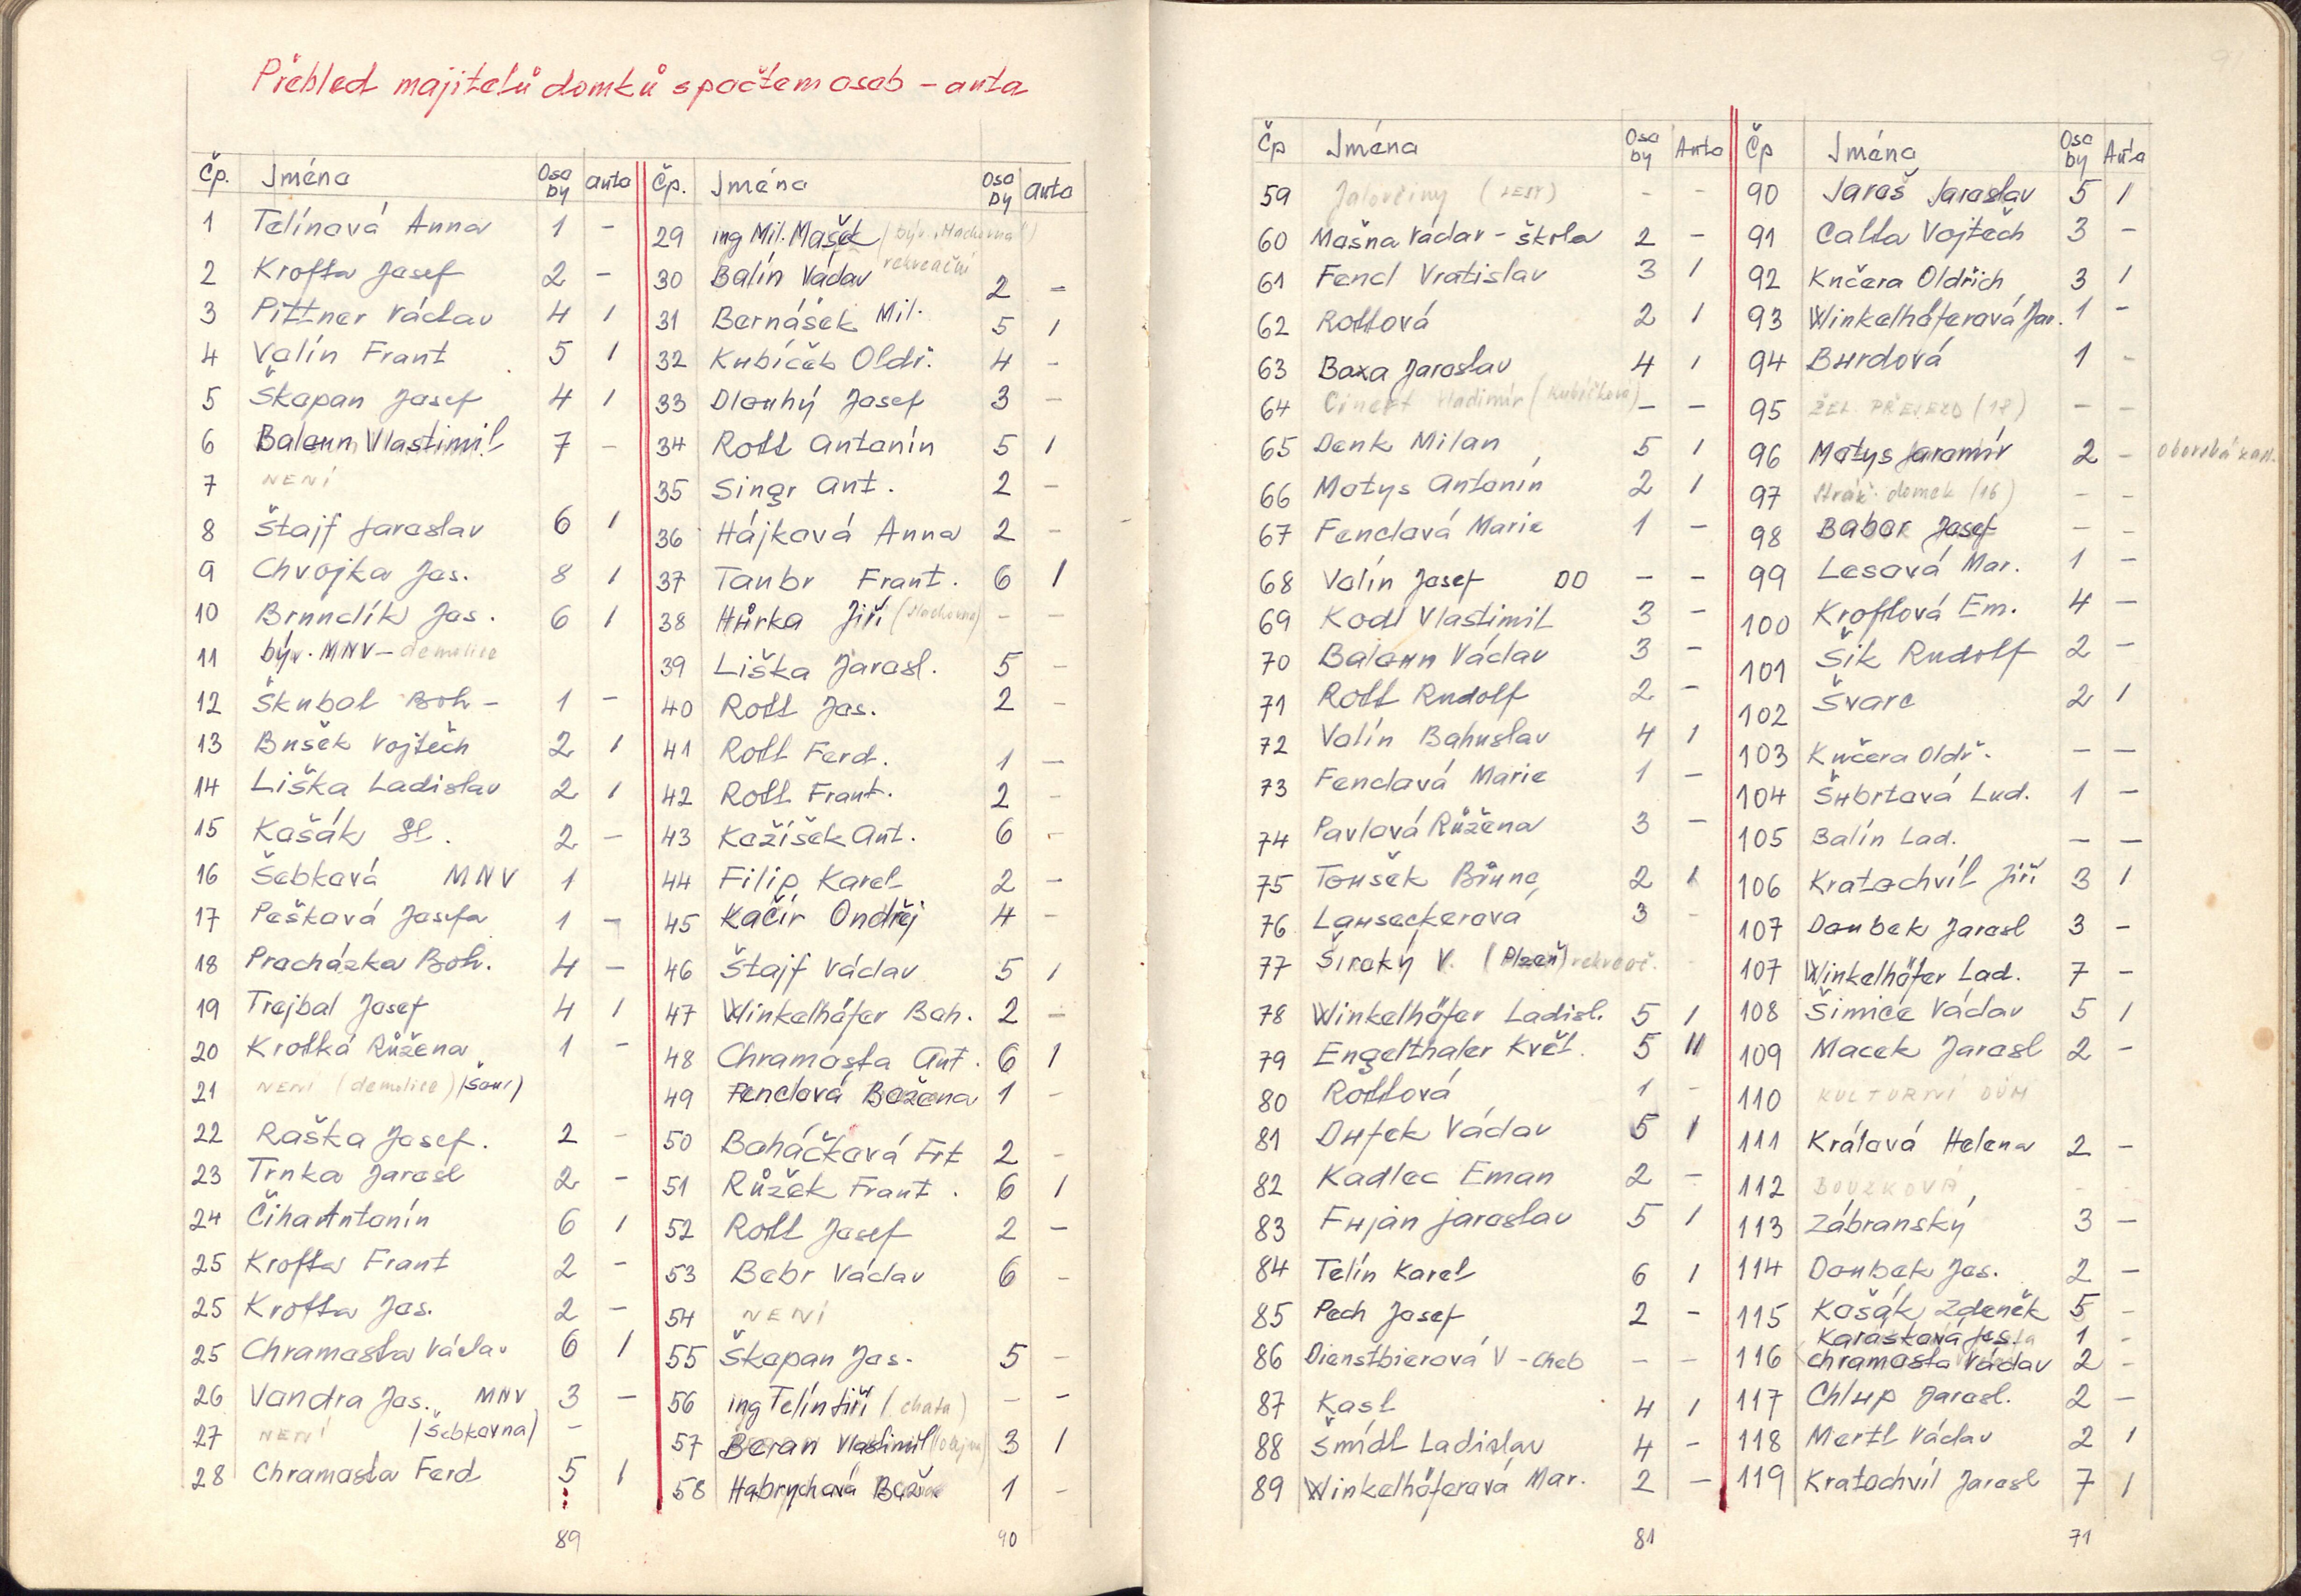 Přehled majitelů domků s počtem osob - auta
Čp. Jména Oso by auto
1 Telínová Anna 1 -
2 Krofta Josef 2 -
3 Pittner Václav 4 1
4 Valín Frant 5 1
5 Škopan Josef 4 1
6 Balaun Vlastimil 7 -
7 NENÍ
8 Štajf Jaroslav 6 1
9 Chvojka Jos. 8 1
10 Brunclík Jos. 6 1
11 býv. MNV - demolice
12 Škubal Boh - 1 -
13 Bušek Vojtěch 2 1
14 Liška Ladislav 2 1
15 Kašák St. 2 -
16 Šebková MNV 1
17 Pešková Josefa 1 -
18 Procházka Boh. 4 -
19 Trejbal Josef 4 1
20 Krotká Růžena 1 -
21 NENÍ (demolice) (Šour)
22 Raška Josef. 2 -
23 Trnka Jarosl 2 -
24 Čiha Antonín 6 1
25 Krofta Frant 2 -
25 Krofta Jos. 2 -
25 Chramosta Václav 6 1
26 Vandra Jos. MNV 3 -
27 NENÍ (Šebkovna) -
28 Chramosta Ferd 5 1
89
Čp. Jména Oso by auto
29 ing Mil. Mašek (býv. Machovna) rekreační
30 Balín Václav 2 -
31 Bernášek Mil. 5 1
32 Kubíček Oldř. 4 -
33 Dlouhý Josef 3 -
34 Rott Antonín 5 1
35 Singr Ant. 2 -
36 Hájková Anna 2 -
37 Taubr Frant. 6 1
38 Hůrka Jiří (Machovna) - -
39 Liška Jarosl. 5 -
40 Rott Jos. 2 -
41 Rott Ferd. 1 -
42 Rott Frant. 2 -
43 Kožíšek Ant. 6 -
44 Filip Karel 2 -
45 Kačír Ondřej 4 -
46 Štajf Václav 5 1
47 Winkelhöfer Boh. 2 -
48 Chramosta Ant. 6 1
49 Fenclová Božena 1 -
50 Boháčková Frt 2 -
51 Růžek Frant. 6 1
52 Rott Josef 2 -
53 Bebr Václav 6 -
54 NENÍ
55 Škopan Jos. 5 -
56 ing Telín Jiří (chata) - -
57 Beran Vlastimil 3 1
58 Habrychová Bož 1 -
90
Čp Jména Oso by Auto
59 Jalovčiny (LESY) - -
60 Mašna Václav - škola 2 -
61 Fencl Vratislav 3 1
62 Rottová 2 1
63 Baxa Jaroslav 4 1
64 Cinert Vladimír (Kubíčková) - -
65 Denk Milan 5 1
66 Matys Antonín 2 1
67 Fenclová Marie 1 -
68 Valín Josef DD - -
69 Kodl Vlastimil 3 -
70 Balaun Václav 3 -
71 Rott Rudolf 2 -
72 Valín Bohuslav 4 1
73 Fenclová Marie 1 -
74 Pavlová Růžena 3 -
75 Toušek Bruno 2 1
76 Lauseckerová 3 -
77 Široký V. (Plzeň) rekreač. -
78 Winkelhöfer Ladisl. 5 1
79 Engelthaler Květ. 5 11
80 Rottová 1 -
81 Dufek Václav 5 1
82 Kadlec Eman 2 -
83 Fujan Jaroslav 5 1
84 Telín Karel 6 1
85 Pech Josef 2 -
86 Dienstbierová V - Cheb - -
87 Kasl 4 1
88 Šmídl Ladislav 4 -
89 Winkelhöferová Mar. 2 -
81
Čp Jména Oso by Auta
90 Jaroš Jaroslav 5 1
91 Calta Vojtěch 3 -
92 Kučera Oldřich 3 1
93 Winkelhöferová Jar. 1 -
94 Burdová 1 -
95 ŽEL. PŘEJEZD (18) - -
96 Matys Jaromír 2 -
97 Stráž. domek (16) - -
98 Babor Josef - -
99 Lesová Mar. 1 -
100 Kroftová Em. 4 -
101 Šik Rudolf 2 -
102 Švarc 2 1
103 Kučera Oldř. - -
104 Šubrtová Lud. 1 -
105 Balín Lad. - -
106 Kratochvíl Jiří 3 1
107 Doubek Jarosl 3 -
107 Winkelhöfer Lad. 7 -
108 Šimice Václav 5 1
109 Macek Jarosl 2 -
110 KULTURNÍ DŮM
111 Králová Helena 2 -
112 BOUZKOVÁ - -
113 Zábranský 3 -
114 Doubek Jos. 2 -
115 Kašák Zdeněk 5 -
Karásková 1 -
116 Chramosta Václav 2 -
117 Chlup Jarosl. 2 -
118 Mertl Václav 2 1
119 Kratochvíl Jarosl 7 1
71